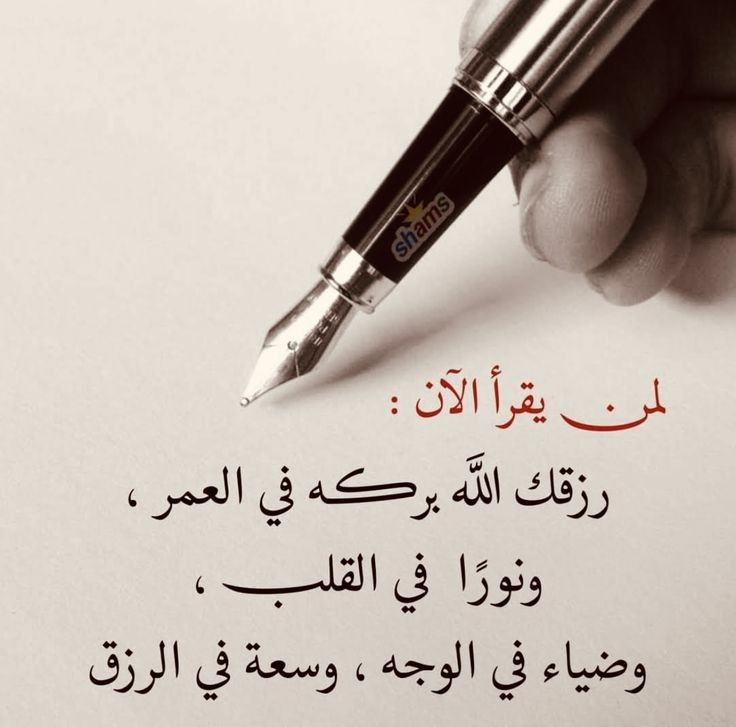 shams
لمن يقرأ الآن :
رزقك اللَّه بركه في العمر ،
ونورًا في القلب ،
وضياء في الوجه ، وسعة في الرزق